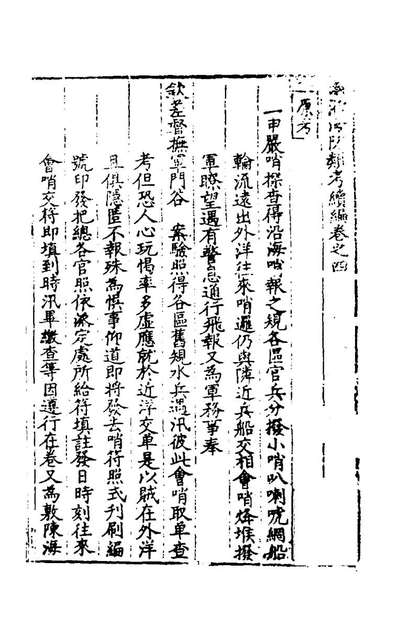 海防類考續編卷之四
原考
一申嚴哨探查得沿海哨報之規各區官兵分撥小哨叭喇唬網船
輪流遠出外洋往來哨邏仍與隣近兵船交相會哨烽堠撥
軍瞭望遇有警息通行飛報又為軍務事奉
欽差督撫軍門谷　案驗照得各區舊規水兵遇汛彼此會哨取单查
考但恐人心玩愒率多虛應就於近洋交单是以賊在外洋
且俱隱匿不報殊為悞事仰道即將發去哨符照式刊刷編
號印發把總各官照依派定處所給符填註發日時刻往來
會哨交符即填到時汛畢繳查等因遵行在卷又為敷陳海